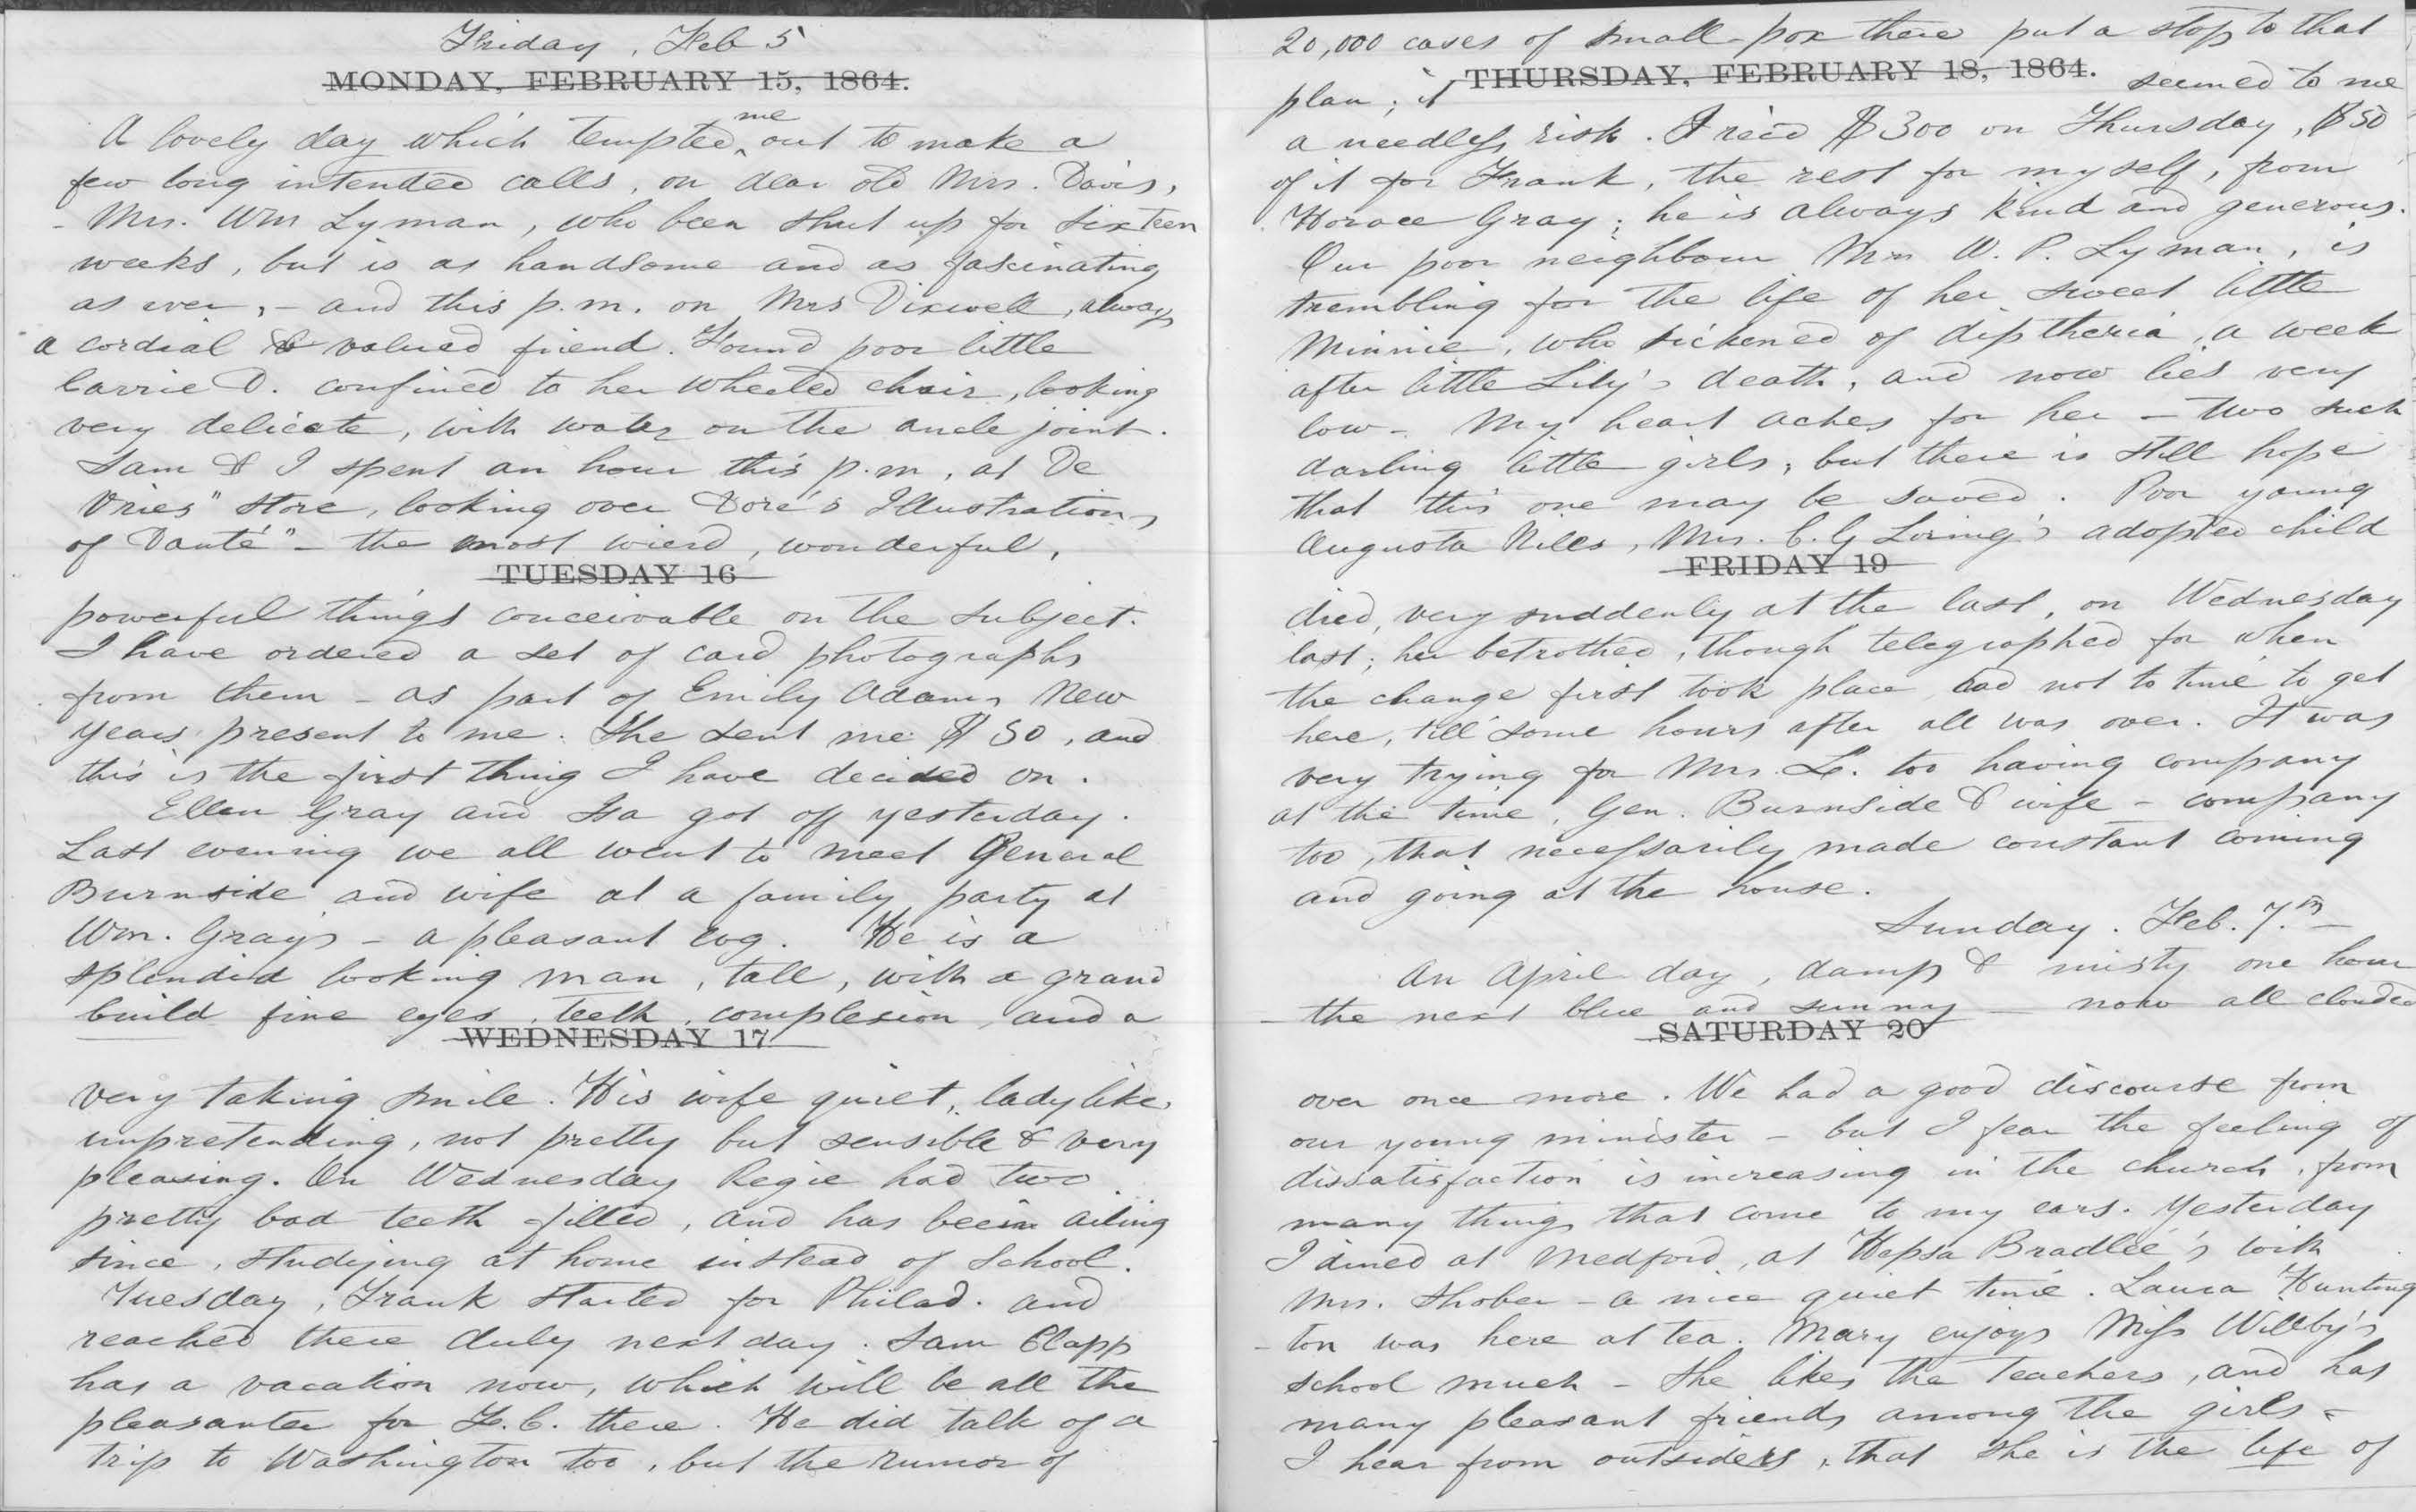 Friday, Feb 5
MONDAY, FEBRUARY 15, 1864.
A lovely day which tempted me out to make a
few long intended calls, on dear old Mrs. Davis,
- Mrs. Wm Lyman, who been shut up for sixteen
weeks, but is as handsome and as fascinating
as ever, - and this p.m. on Mrs Dixwell, always
a cordial & valued friend. Found poor little
Carrie D. confined to her wheeled chair, looking
very delicate, with water on the ancle joint.
Sam & I spent an hour this p.m, at De
Vries" store, looking over Doré's Illustrations
of Danté" - the most wierd, wonderful,
TUESDAY 16
powerful things conceivable on the subject.
I have ordered a set of card photographs
from them - as part of Emily Adams New
Years present to me. She sent me $50, and
this is the first thing I have decided on.
Ellen Gray and Isa got off yesterday.
Last evening we all went to meet General
Burnside and wife at a family party at
Wm. Gray's - a pleasant evg. He is a
splendid looking man, tall, with a grand
build fine eyes, teeth, complexion, and a
WEDNESDAY 17
very taking smile. His wife quiet, ladylike,
unpretending, not pretty but sensible & very
pleasing. On Wednesday Regie had two
pretty bad teeth filled, and has been ailing
since, studying at home instead of School.
Tuesday, Frank started for Philad. and
reached there duly next day. Sam Clapp
has a vacation now, which will be all the
pleasanter for F.C. there. He did talk of a
trip to Washington too, but the rumor of
20,000 cases of small-pox there put a stop to that
THURSDAY, FEBRUARY 18, 1864.
plan; it seemed to me
a needless risk. I rec'd $300 on Thursday, $50
of it for Frank, the rest for myself, from
Horace Gray; he is always kind and generous.
Our poor neighbour Mrs W. P. Lyman, is
trembling for the life of her sweet little
Minnie, who sickened of diptheria, a week
after little Lily's death, and now lies very
low - My heart aches for her - two such
darling little girls, but there is still hope
that this one may be saved. Poor young
Augusta Nilles, Mrs. C. G Loring's adopted child
FRIDAY 19
died, very suddenly at the last, on Wednesday
last; her betrothed, though telegraphed for when
the change first took place had not to time to get
here, till some hours after all was over. It was
very trying for Mrs. L. too having company
at the time, Gen. Burnside & wife - company
too, that necessarily made constant coming
and going at the house.
Sunday. Feb. 7th -
An April day, damp & misty one hour
- the next blue and sunny - now all clouded
SATURDAY 20
over once more. We had a good discourse from
our young minister - but I fear the feeling of
dissatisfaction is increasing in the church, from
many things that come to my ears. Yesterday
I dined at Medford, at Hepsa Bradlee's with
Mrs. Shober - a nice quiet time. Laura Hunting
- ton was here at tea. Mary enjoys Miss Willby's
school much - She likes the teachers, and has
many pleasant friends among the girls -
I hear from outsiders, that she is the life of